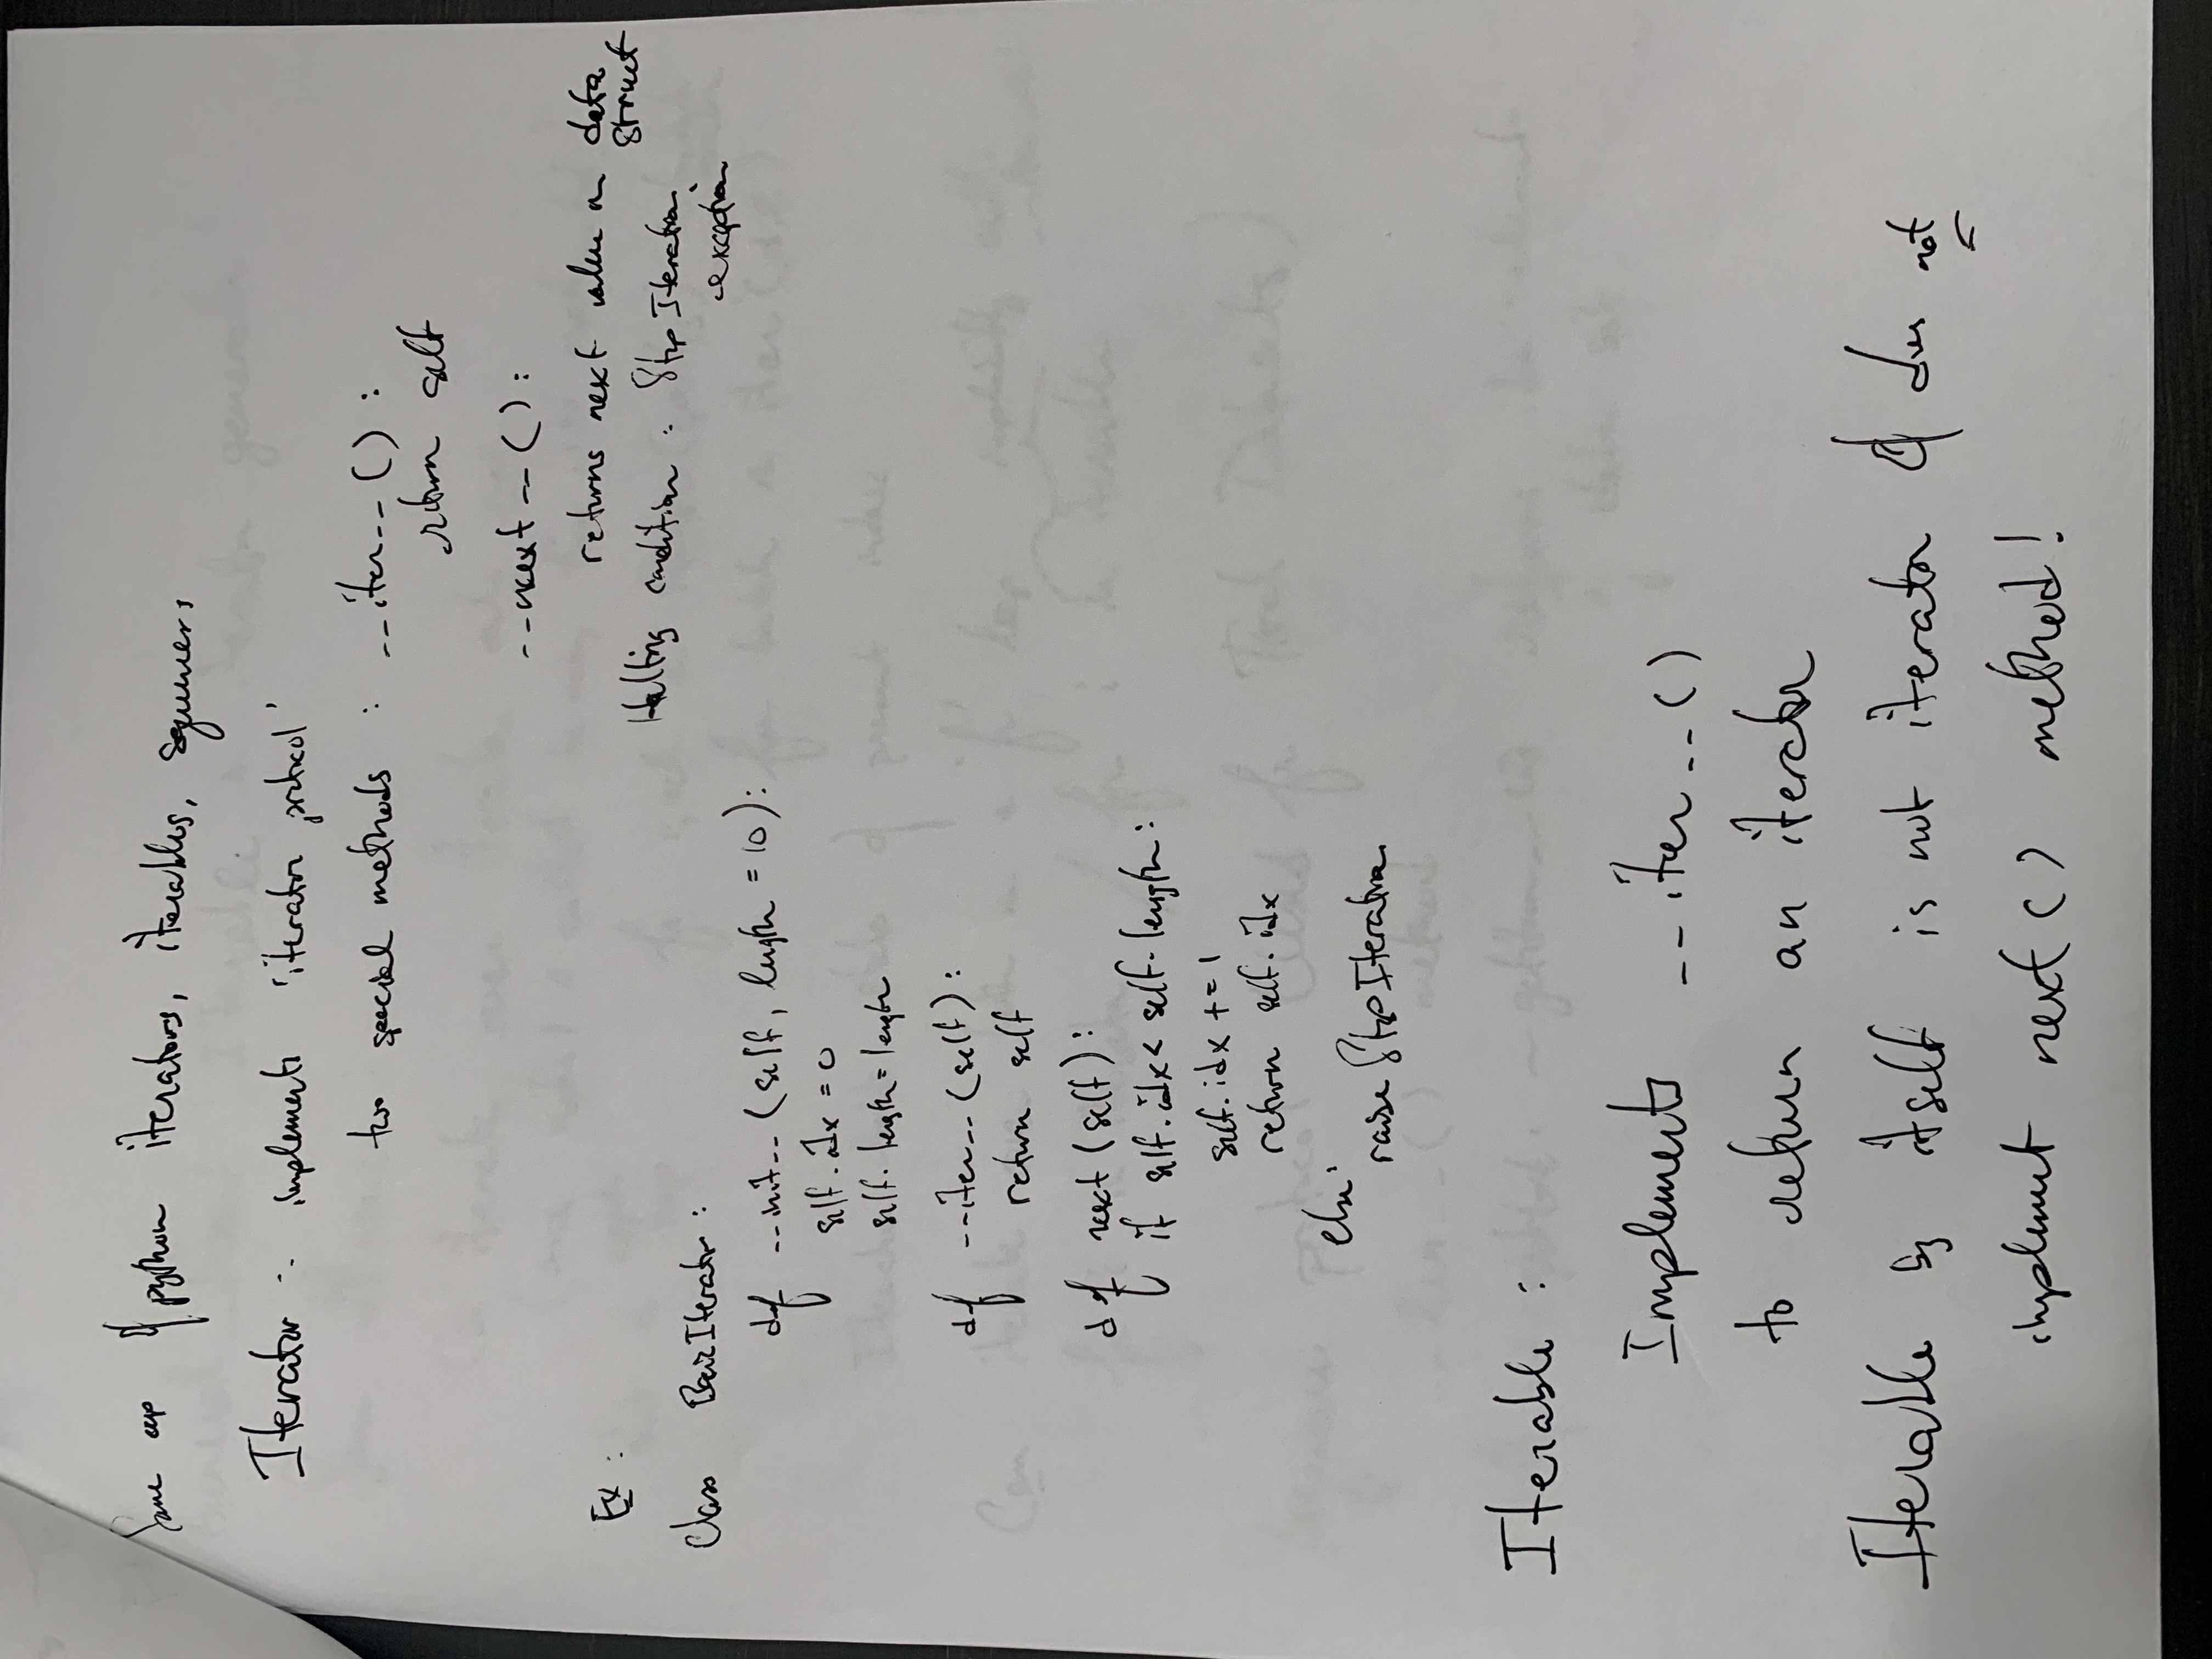 Some exp of python iterators, iterables, sequences
Iterator : implements 'iterator protocol'
two special methods : __iter__ ( ) :
return self
__next__ ( ) :
returns next value in data struct
Halting condition : StopIteration exception
Ex :
Class BasicIterator :
def __init__ (self, length = 10) :
self.idx = 0
self.length = length
def __iter__ (self) :
return self
def next (self) :
if self.idx < self.length :
self.idx += 1
return self.idx
else :
raise StopIteration
Iterable :
Implements __iter__ ( )
to return an iterator
Iterable by itself is not iterator & does not
implement next ( ) method !